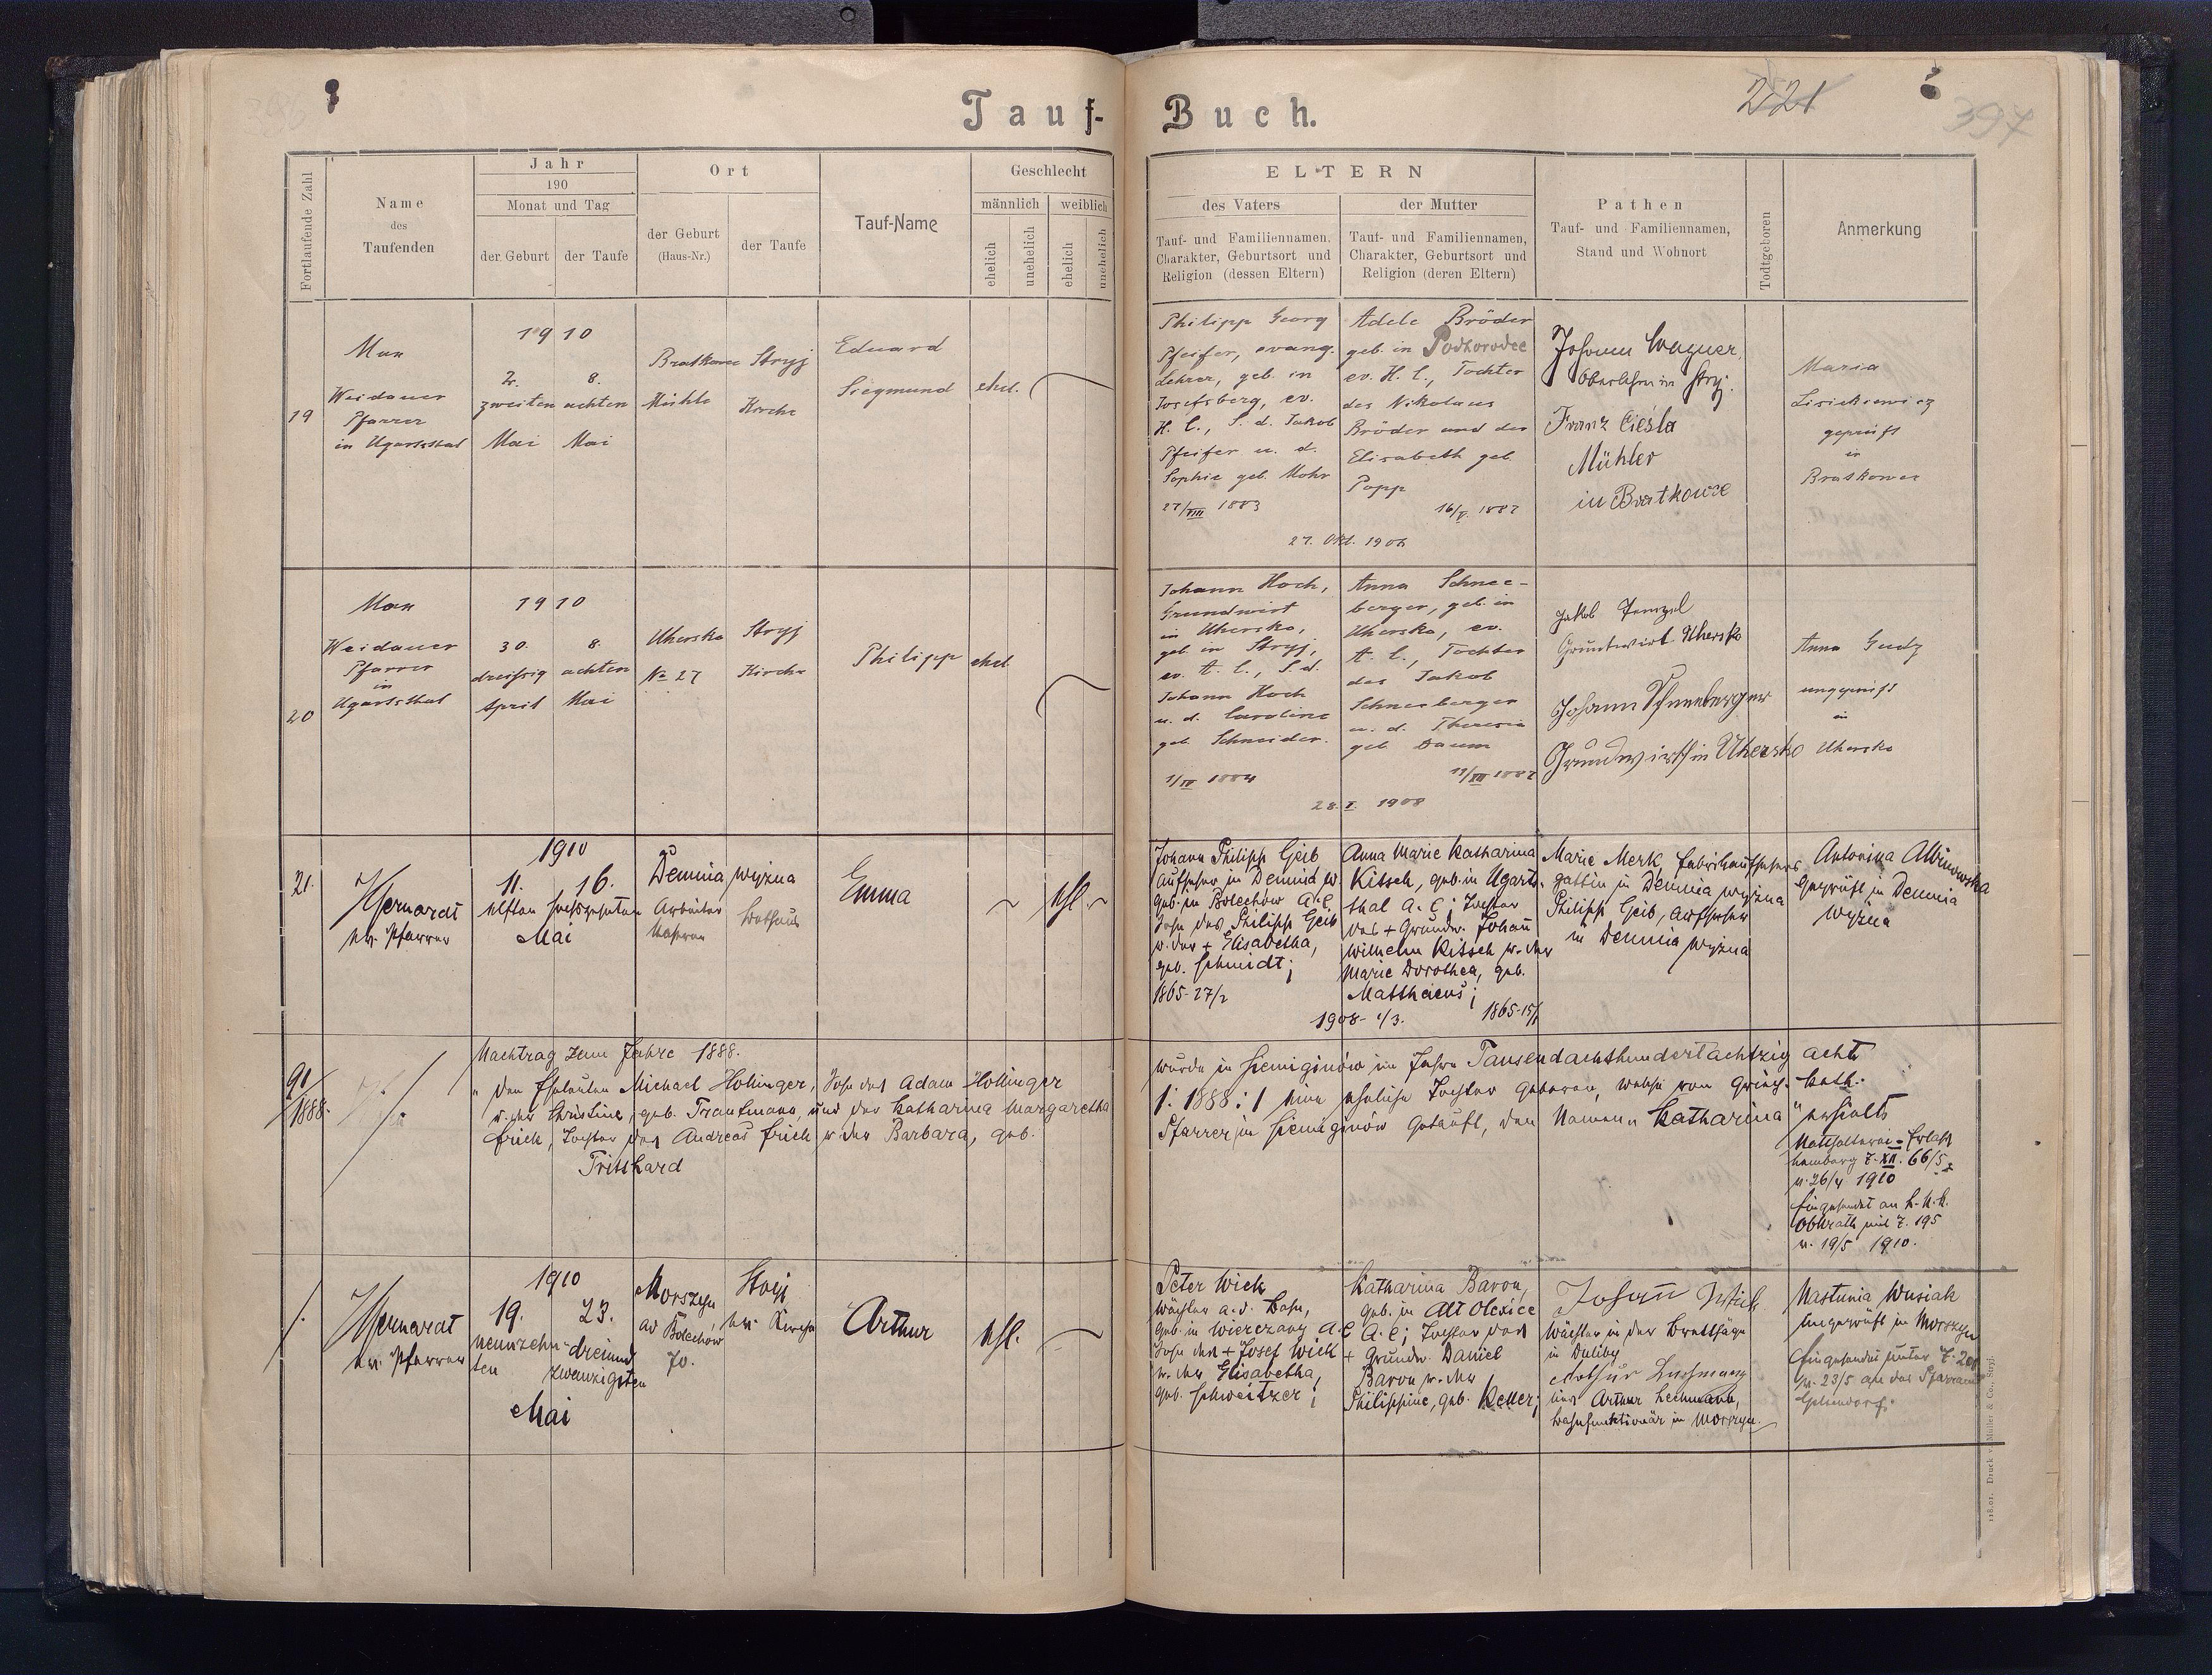 Tauf-Buch.
221
397
Fortlaufende Zahl
Name
des
Taufenden
Jahr
190
Monat und Tag
der Geburt
der Taufe
Ort
der Geburt
(Haus-Nr.)
der Taufe
Tauf-Name
Geschlecht
männlich
weiblich
ehelich
unehelich
ehelich
unehelich
ELTERN
des Vaters
Tauf- und Familiennamen,
Charakter, Geburtsort und
Religion (dessen Eltern)
der Mutter
Tauf- und Familiennamen,
Charakter, Geburtsort und
Religion (deren Eltern)
Pathen
Tauf- und Familiennamen,
Stand und Wohnort
Todtgeboren
Anmerkung
19
Max
Weidauer
Pfarrer
in Ugartsthal
1910
2. 8.
zweiten achten
Mai Mai
Bratkowce
Mühle
Stryj
Kirche
Eduard
Siegmund
ehel.
Philipp Georg
Pfeifer, evang.
Lehrer, geb. in
Josefsberg, ev.
H. C., S. d. Jakob
Pfeifer u. d.
Sophie geb. Mohr
27/VIII 1883
Adele Bröder
geb. in Podhorodce
ev. H. C., Tochter
des Nikolaus
Bröder und der
Elisabeth geb.
Popp
27. Okt. 1906
Johann Wagner,
Oberlehrer in Stryj.
Franz Cieśla
Mühler
in Bratkowce
Maria
geprüft
in
Bratkowce
20
Max
Weidauer
Pfarrer
in
Ugartsthal
1910
30. 8.
dreißig achten
April Mai
Uhersko
No 27
Stryj
Kirche
Philipp
ehel.
Johann Hoch,
Grundwirt
in Uhersko,
geb. in Stryj,
ev. A. C., S. d.
Johann Hoch
u. d. Caroline
geb. Schneider.
1/IV 1884
Anna Schnee-
berger, geb. in
Uhersko, ev.
A. C., Tochter
des Jakob
Schneeberger
u. d. Theresia
geb. Daum
28. I. 1908
Jakob
Grundwirt Uhersko
Johann Schneeberger
Grundwirth in Uhersko
Anna
ungeprüft
in
Uhersko
21.
Pfarrer
1910
11. 16.
elften sechszehnten
Mai
Demnia wyżna
Arbeiter
Kaserne
Bethaus
Emma
ehl.
Johann Philipp Geib
Aufseher in Demnia w.
geb. in Bolechów A.C.
Sohn des Philipp Geib
u. der + Elisabetha,
geb. Schmidt;
1865-27/2
Anna Marie Katharina
Kitsch, geb. in Ugarts-
thal A. C; Tochter
des + Grundw. Johann
Wilhelm Kitsch u. der
Marie Dorothea, geb.
Matthaeus;
1908- 1/3.
Marie Merk, Fabriksaufsehers
gattin in Demnia wyżna
Philipp Geib, Aufseher
in Demnia wyżna
Antonina Albinowska
geprüft in Demnia
wyżna
91/1888.
Nachtrag zum Jahre 1888.
" Den Eheleuten Michael Hollinger, Sohn des Adam Hollinger
u. der Christine, geb. Trautmann, und der Katharina Margaretha
Frick, Tochter des Andreas Frick u. der Barbara, geb.
Tritthard
wurde in Siemiginów im Jahre Tausendachthundertachtzig acht
/: 1888 :/ eine eheliche Tochter geboren, welche vom griech.-kath.
Pfarrer in Siemiginów getauft, den Namen " Katharina " erhielt
Statthalterei-Erlaß
Lemberg Z. XII. 66/5
v. 26/4 1910
Eingesendet an k. k. ev.
Obkrath mit Z. 195
v. 19/5 1910.
Pfarrer
1910
19. 23.
neunzehn- dreiund
ten zwanzigsten
Mai
Morszyn
ad Bolechów
70.
Stryj
ev. Kirche
Arthur
ehl.
Peter Wick
Wächter a. d. Bahn,
A. C
Sohn des + Josef Wick
u. der Elisabetha,
geb. Schweitzer;
Katharina Baron,
geb. in Alt Olexice
A. C; Tochter des
+ Grundw. Daniel
Baron u. der
Philippine, geb. Keller;
Johann Wick
Wächter in der Brettsäge
in Duliby
und Arthur Lechmann,
Bahnfunktionär in Morszyn
Nastunia Wusiak
ungeprüft in Morszyn
Eingesendet unter Z. 201
v. 23/5 an das Pfarramt
Gelsendorf.
118.01. Druck v. Müller & Co., Stryj.